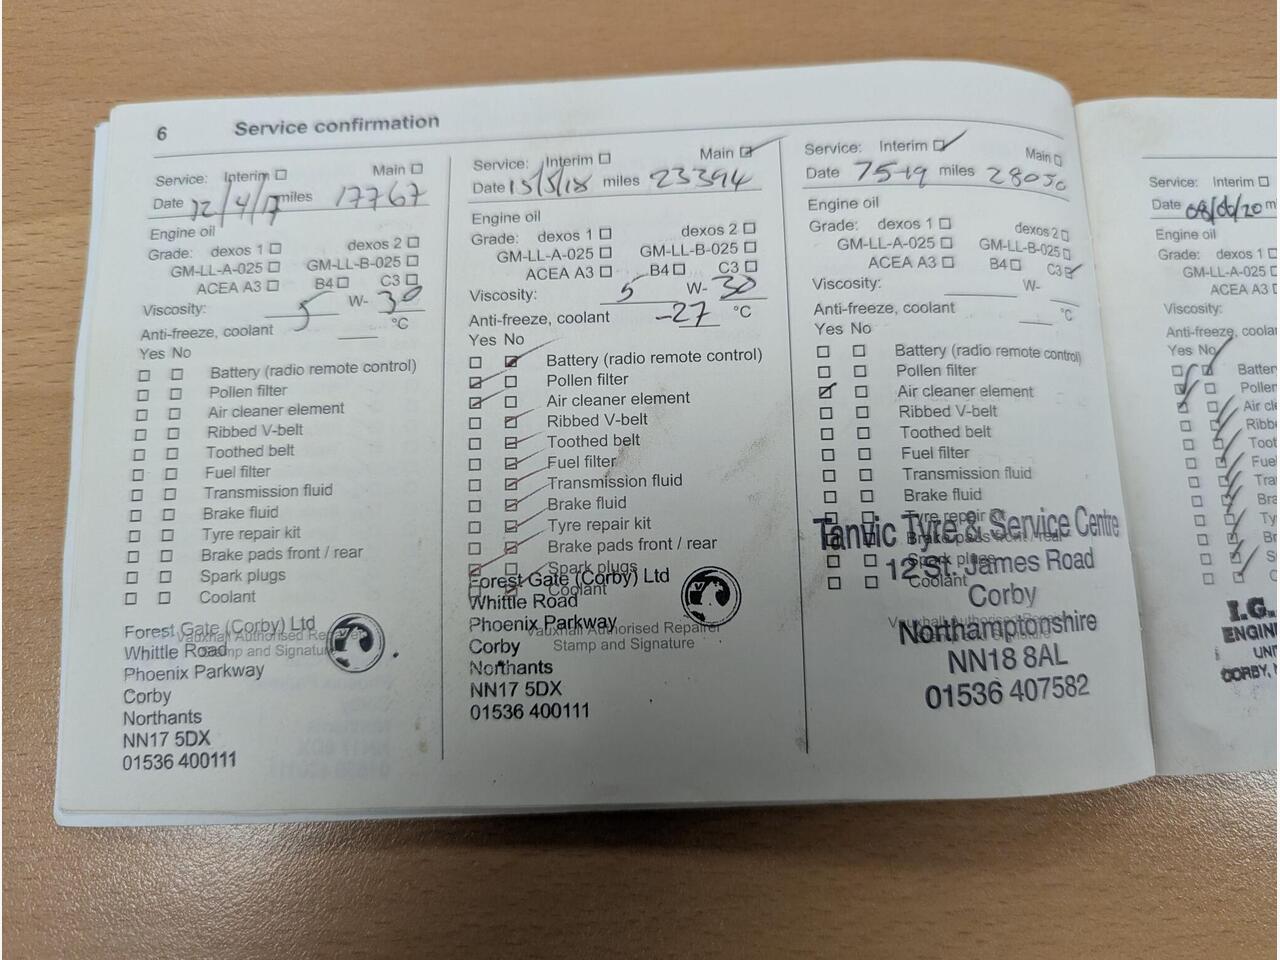 6 Service confirmation
Service: Interim ☐ Main ☐
Date 12/4/17 miles 17767
Engine oil
Grade: dexos 1 ☐ dexos 2 ☐
GM-LL-A-025 ☐ GM-LL-B-025 ☐
ACEA A3 ☐ B4 ☐ C3 ☐
Viscosity: 5 W- 30
Anti-freeze, coolant °C
Yes No
Battery (radio remote control)
Pollen filter
Air cleaner element
Ribbed V-belt
Toothed belt
Fuel filter
Transmission fluid
Brake fluid
Tyre repair kit
Brake pads front / rear
Spark plugs
Coolant
Forest Gate (Corby) Ltd
Vauxhall Authorised Repairer
Whittle Road
Stamp and Signature
Phoenix Parkway
Corby
Northants
NN17 5DX
01536 400111
Service: Interim ☐ Main ☑
Date 15/5/18 miles 23394
Engine oil
Grade: dexos 1 ☐ dexos 2 ☐
GM-LL-A-025 ☐ GM-LL-B-025 ☐
ACEA A3 ☐ B4 ☐ C3 ☐
Viscosity: 5 W- 30
Anti-freeze, coolant -27 °C
Yes No
Battery (radio remote control)
Pollen filter
Air cleaner element
Ribbed V-belt
Toothed belt
Fuel filter
Transmission fluid
Brake fluid
Tyre repair kit
Brake pads front / rear
Spark plugs
Forest Gate (Corby) Ltd
Coolant
Whittle Road
Phoenix Parkway
Vauxhall Authorised Repairer
Corby
Stamp and Signature
Northants
NN17 5DX
01536 400111
Service: Interim ☑ Main ☐
Date 7519 miles 28050
Engine oil
Grade: dexos 1 ☐ dexos 2 ☐
GM-LL-A-025 ☐ GM-LL-B-025 ☐
ACEA A3 ☐ B4 ☐ C3 ☑
Viscosity: W-
Anti-freeze, coolant °C
Yes No
Battery (radio remote control)
Pollen filter
Air cleaner element
Ribbed V-belt
Toothed belt
Fuel filter
Transmission fluid
Brake fluid
Tyre repair kit
Tanvic Tyre & Service Centre
Brake pads front / rear
Spark plugs
12 St. James Road
Coolant
Corby
Northamptonshire
NN18 8AL
01536 407582
Service: Interim ☐
Date 08/06/20 m
Engine oil
Grade: dexos 1
GM-LL-A-025
ACEA A3
Viscosity:
Anti-freeze, coolan
Yes No
Batter
Pollen
Air cle
Ribbe
Toot
Fue
Tra
Bra
Ty
Br
S
C
I.G.
ENGIN
UNI
CORBY,